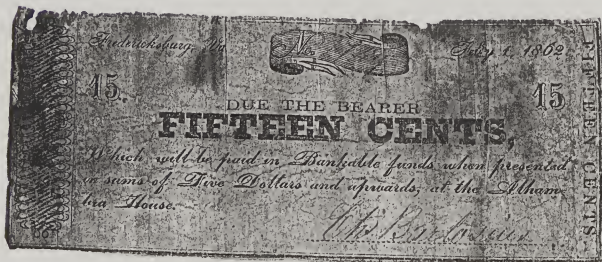 Fredericksburg, Va. No. July 1, 1862
15. 15
DUE THE BEARER
FIFTEEN CENTS,
Which will be paid in Bankable funds when presented
in sums of Five Dollars and upwards, at the Alham-
bra House.
FIFTEEN CENTS.